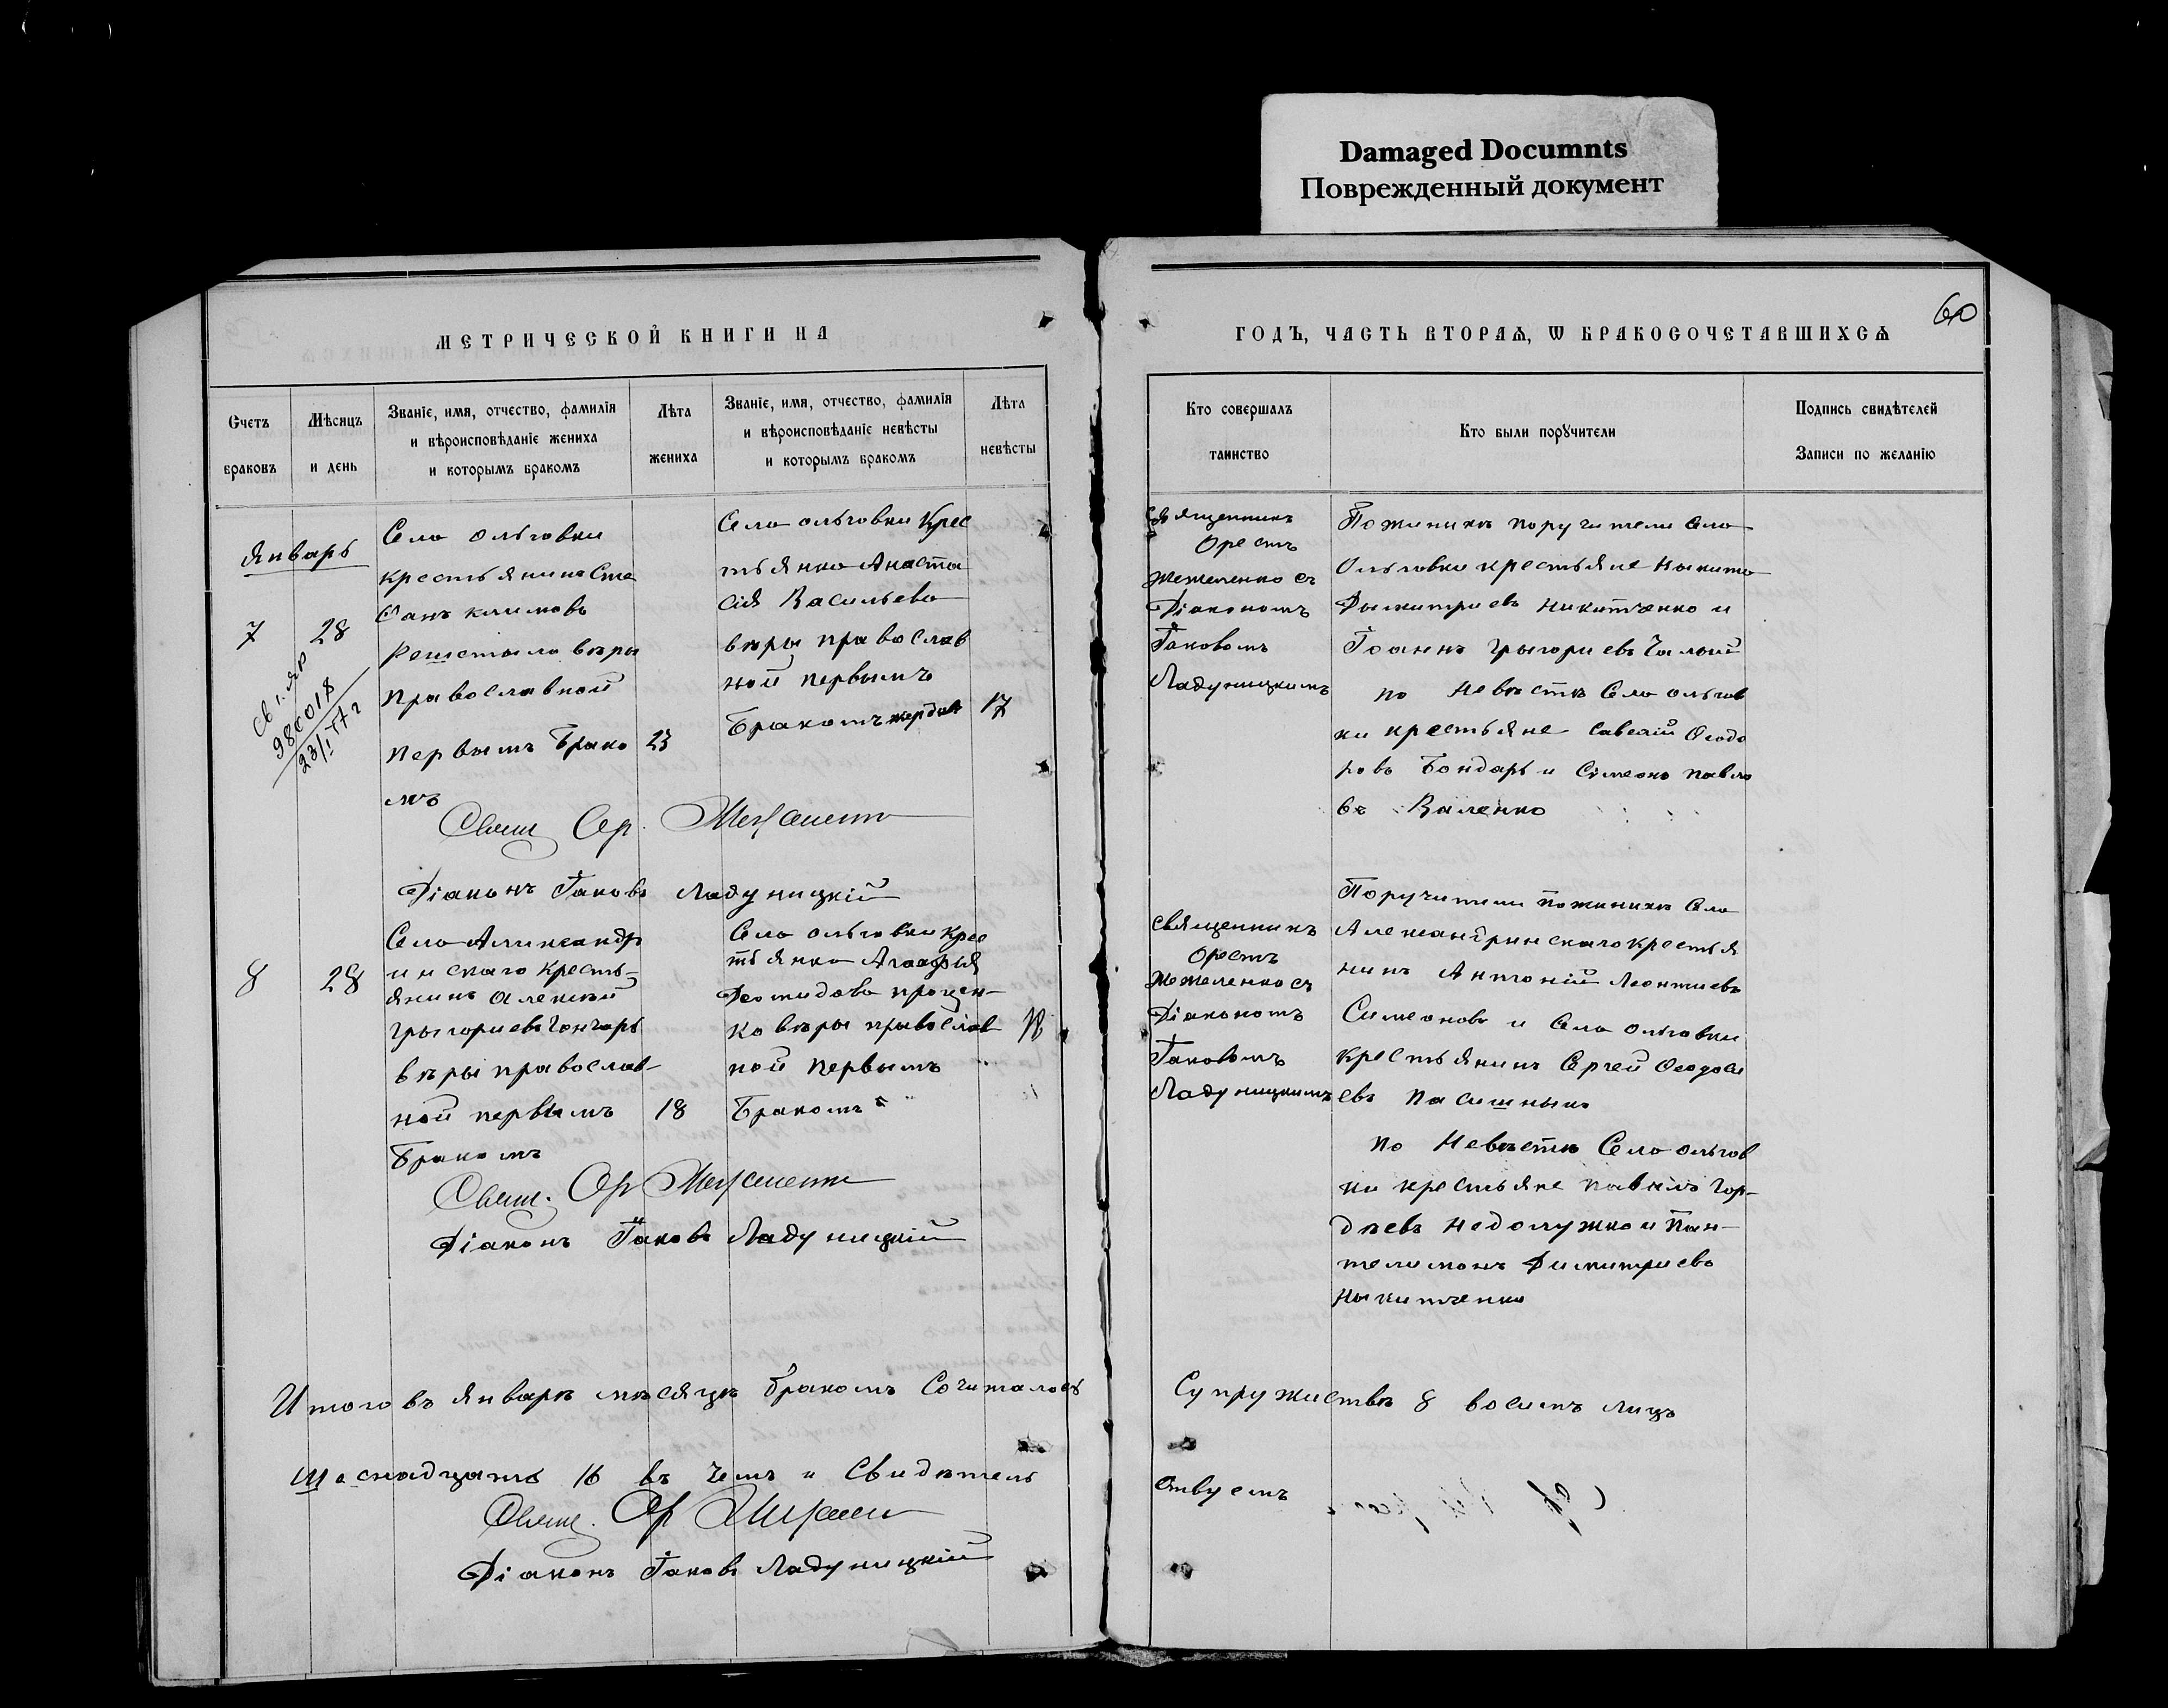 Damaged Documnts
Поврежденный документ
60
МЕТРИЧЕСКОЙ КНИГИ НА
ГОДЪ, ЧАСТЬ ВТОРАѦ, Ѡ БРАКОСОЧЕТАВШИХСѦ
Счетъ
браковъ
Мѣсяцъ
и день
Званіе, имя, отчество, фамилія
и вѣроисповѣданіе жениха
и которымъ бракомъ
Лѣта
жениха
Званіе, имя, отчество, фамилія
и вѣроисповѣданіе невѣсты
и которымъ бракомъ
Лѣта
невѣсты
Кто совершалъ
таинство
Кто были порꙋчители
Подпись свидѣтелей
Записи по желанію
Январь
7
28
Село Ольговки
крестьянинъ Сте
фанъ Климовъ
вѣры
Православной
первымъ Брако
мъ
23
Село Ольговки Крес
тьянка Анаста
сія Васильева
вѣры православ
ной первымъ
Бракомъ
17
Священникъ
Орестъ
Жежеленко съ
Діакономъ
Іаковомъ
Ладуницкимъ
По женихѣ поручители Села
Ольговки крестьяне Никита
Дымитриевъ Никитченко и
Іоаннъ Грыгориевъ Чалый
по Невѣстѣ Села Ольгов
ки крестьяне Савелій Ѳеодо
ровъ Бондарь и Симеонъ Павло
въ Валенко
Свящ. Ор. Жежеленко
Діаконъ Іаковъ Ладуницкій
8
28
Села Александр
инскаго Кресть-
янинъ Алексѣй
Грыгориевъ Гончаръ
вѣры православ-
ной первымъ
Бракомъ
18
Села Ольговки Крес
тьянка Агафья
Демидова Процен-
ко вѣры православ
ной первымъ
Бракомъ
18
Священникъ
Орестъ
Жежеленко съ
Діакономъ
Іаковомъ
Ладуницкимъ
Поручители по женихѣ Села
Александринскаго крестья
нинъ Антоній Леонтиевъ
Симеоновъ и Села Ольговки
Крестьянинъ Сергей Ѳеодоси
евъ Пасишныкъ
по Невѣстѣ Села Ольгов
ки крестьяне Павелъ Гор-
дѣевъ Недолужко и Пан-
телимонъ Димитриевъ
Ныкитченко
Свящ. Ор Жежеленко
Діаконъ Іаковъ Ладуницкій
Итого въ Январѣ мѣсяцѣ бракомъ Сочиталось Супружествъ 8 восимъ лицъ
Шеснадцать 16 въ чемъ и Свидѣтель ствуемъ
Свящ. Ор Жежелен
Діаконъ Іаковъ Ладуницкій